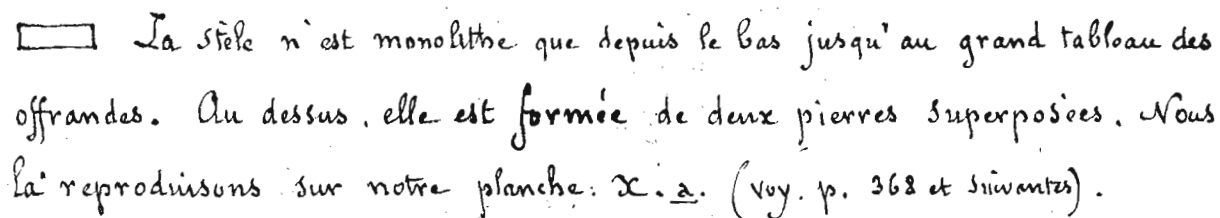 La stèle n'est monolithe que depuis le bas jusqu'au grand tableau des
offrandes. Au dessus, elle est formée de deux pierres superposées. Nous
la reproduisons sur notre planche: X. a. (voy. p. 368 et suivantes).